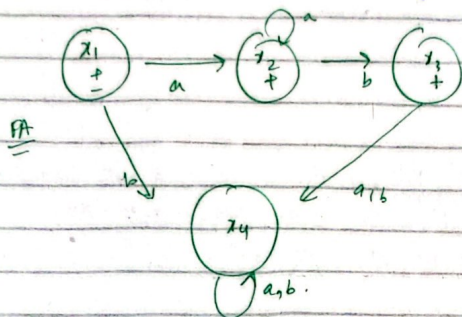 a
x1 + -
a
x2 +
b
x3 +
FA
b
a,b
x4
a,b.